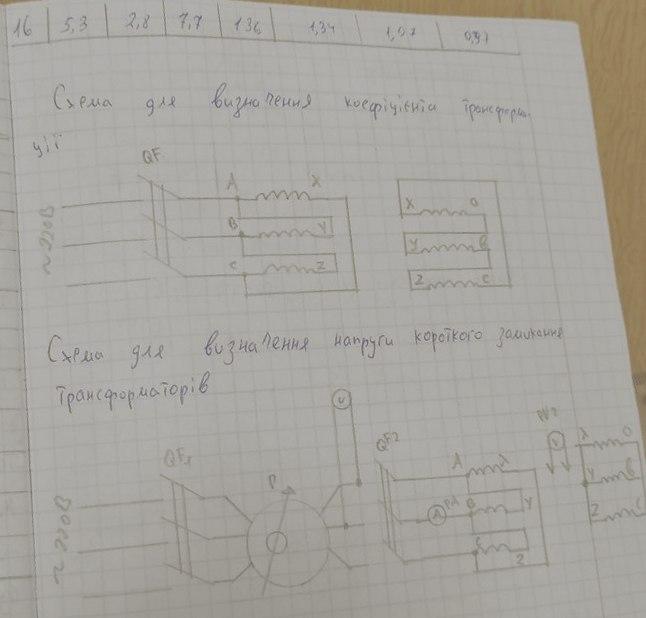 16 5,3 2,8 7,7 136 1,34 1,07 0,91
Схема для визначення коефіцієнта трансформа-
ції
QF
A X
B Y
C Z
~220В
X a
Y B
Z C
Схема для визначення напруги короткого замикання
трансформаторів
V
QF1
P
QF2
A X
A PA B Y
C Z
~220В
PV2
V
X a
Y B
Z C